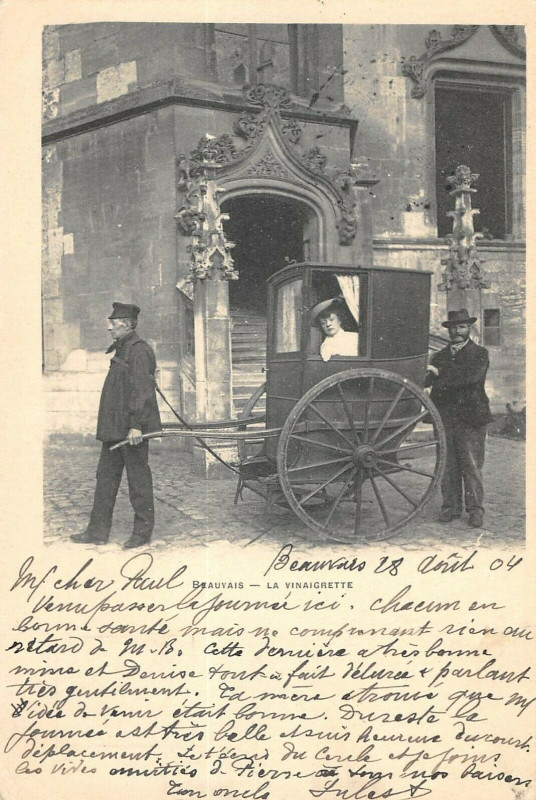 Beauvais 28 Août 04
BEAUVAIS — LA VINAIGRETTE
My cher Paul
Venu passer la journée ici. chacun en
bonne santé mais ne comprenant rien au
retard de M.B. Cette dernière a très bonne
mine et Denise tout à fait délurée & parlant
très gentiment. Ta mère a trouvé que my
idée de venir était bonne. Du reste la
journée est très belle et suis heureux du court
déplacement. du Cercle et je joins
les vives amitiés de Pierre à tous nos baisers
Ton oncle Jules